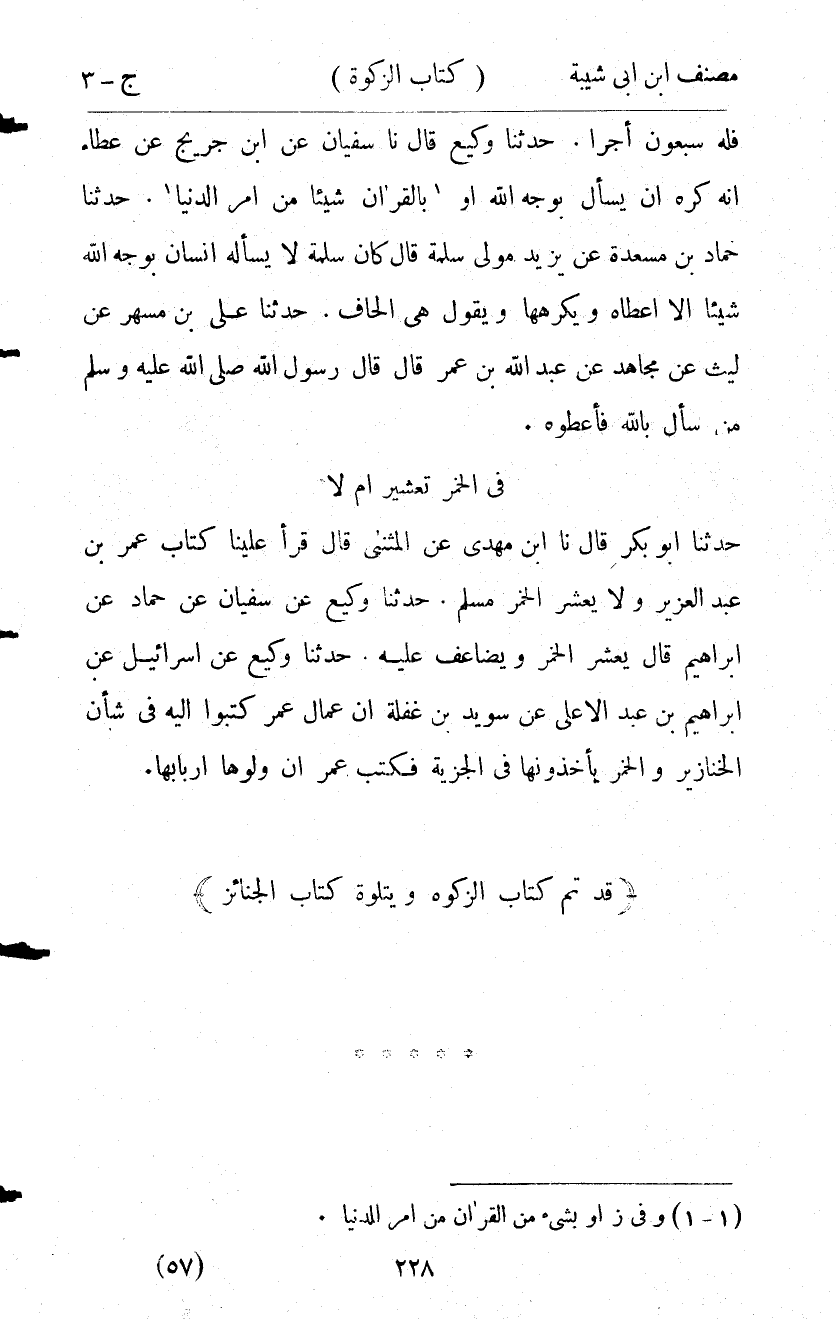 مصنف ابن ابى شيبة ( كتاب الزكوة ) ج - ٣
فله سبعون أجرا . حدثنا وكيع قال نا سفيان عن ابن جريج عن عطاء
انه كره ان يسأل بوجه الله او ' بالقرآن شيئا من امر الدنيا' . حدثنا
حماد بن مسعدة عن يزيد مولى سلمة قال كان سلمة لا يسأله انسان بوجه الله
شيئا الا اعطاه و يكرهها و يقول هى الحاف . حدثنا على بن مسهر عن
ليث عن مجاهد عن عبد الله بن عمر قال قال رسول الله صلى الله عليه و سلم
من سأل بالله فأعطوه .
فى الخمر تعشير ام لا
حدثنا ابو بكر قال نا ابن مهدى عن المثنى قال قرأ علينا كتاب عمر بن
عبد العزيز و لا يعشر الخمر مسلم . حدثنا وكيع عن سفيان عن حماد عن
ابراهيم قال يعشر الخمر و يضاعف عليه . حدثنا وكيع عن اسرائيل عن
ابراهيم بن عبد الاعلى عن سويد بن غفلة ان عمال عمر كتبوا اليه فى شأن
الخنازير و الخمر يأخذونها فى الجزية فكتب عمر ان ولوها اربابها.
﴿ قد تم كتاب الزكوه و يتلوة كتاب الجنائز ﴾
(١-١) و فى ز او بشىء من القرآن من امر الدنيا .
٢٢٨ (٥٧)